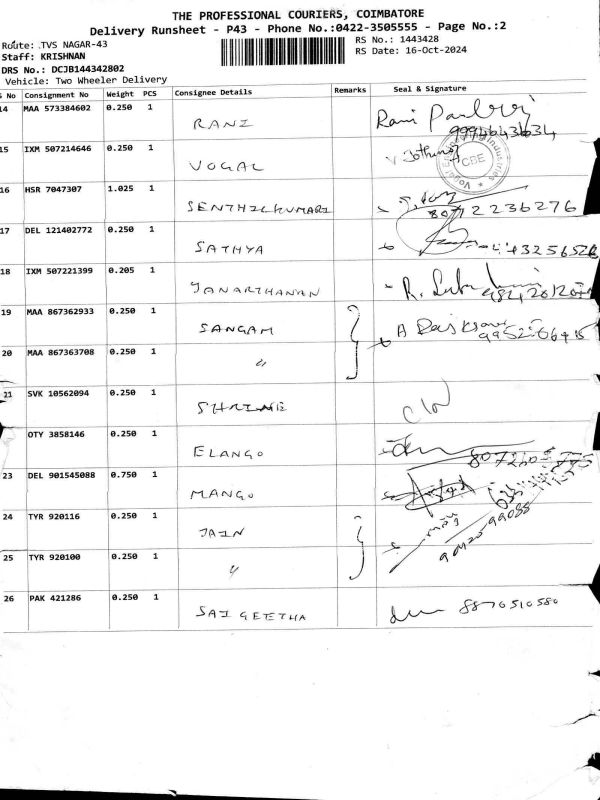 THE PROFESSIONAL COURIERS, COIMBATORE
Delivery Runsheet - P43 - Phone No.:0422-3505555 - Page No.:2
Route: TVS NAGAR-43
RS No.: 1443428
Staff: KRISHNAN
RS Date: 16-Oct-2024
DRS No.: DCJB144342802
Vehicle: Two Wheeler Delivery
S No Consignment No Weight PCS Consignee Details Remarks Seal & Signature
14 MAA 573384602 0.250 1 RANI Rani
15 IXM 507214646 0.250 1 VOGAL CBE
16 HSR 7047307 1.025 1 SENTHILKUMAR
17 DEL 121402772 0.250 1 SATHYA
18 IXM 507221399 0.205 1 JANARTHANAN R.
19 MAA 867362933 0.250 1 SANGAM A
20 MAA 867363708 0.250 1 "
21 SVK 10562094 0.250 1 SHRINE
OTY 3858146 0.250 1 ELANGO
23 DEL 901545088 0.750 1 MANGO
24 TYR 920116 0.250 1 JAIN
25 TYR 920100 0.250 1 "
26 PAK 421286 0.250 1 SAI GEETHA 8870510580